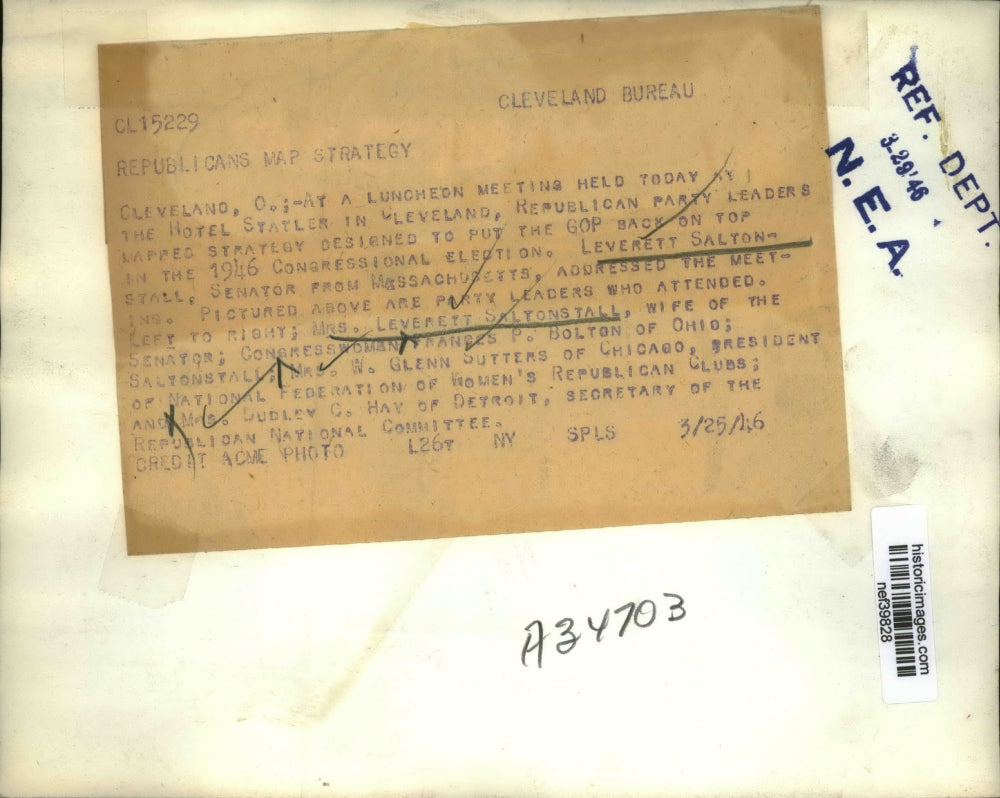 CLEVELAND BUREAU
CL15229
REPUBLICANS MAP STRATEGY
CLEVELAND, O.;-AT A LUNCHEON MEETING HELD TODAY AT
THE HOTEL STATLER IN CLEVELAND, REPUBLICAN PARTY LEADERS
MAPPED STRATEGY DESIGNED TO PUT THE GOP BACK ON TOP
IN THE 1946 CONGRESSIONAL ELECTION. LEVERETT SALTON-
STALL, SENATOR FROM MASSACHUSETTS, ADDRESSED THE MEET-
ING. PICTURED ABOVE ARE PARTY LEADERS WHO ATTENDED.
LEFT TO RIGHT; MRS. LEVERETT SALTONSTALL, WIFE OF THE
SENATOR; CONGRESSWOMAN FRANCES P. BOLTON OF OHIO;
SALTONSTALL; MRS. W. GLENN SUTTERS OF CHICAGO, PRESIDENT
OF NATIONAL FEDERATION OF WOMEN'S REPUBLICAN CLUBS;
AND MRS. DUDLEY C. HAY OF DETROIT, SECRETARY OF THE
REPUBLICAN NATIONAL COMMITTEE.
CREDIT ACME PHOTO L26T NY SPLS 3/25/46
REF. DEPT.
3-29'46
N. E. A.
historicimages.com
nef39828
A34703